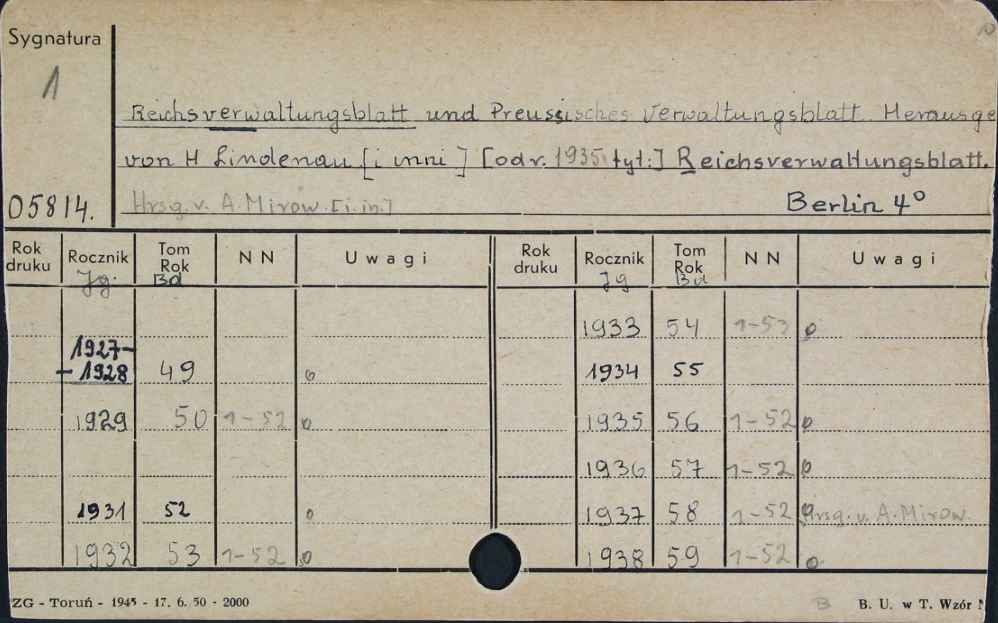 Sygnatura
1
Reichsverwaltungsblatt und Preussisches Verwaltungsblatt. Herausge
von H Lindenau [i inni] [od r. 1935 tyt:] Reichsverwaltungsblatt.
05814. Hrsg. v. A. Mirow. [i. in.] Berlin 4°
Rok druku Rocznik Jg. Tom Rok Bd NN Uwagi Rok druku Rocznik Jg Tom Rok Bd NN Uwagi
1933 54 1-53 0
1927-
-1928 49 0 1934 55
1929 50 1-52 0 1935 56 1-52 0
1936 57 1-52 0
1931 52 0 1937 58 1-52 0 Hrsg. v. A. Mirow.
1932 53 1-52 0 1938 59 1-52 0
ZG - Toruń - 1945 - 17. 6. 50 - 2000 B B. U. w T. Wzór